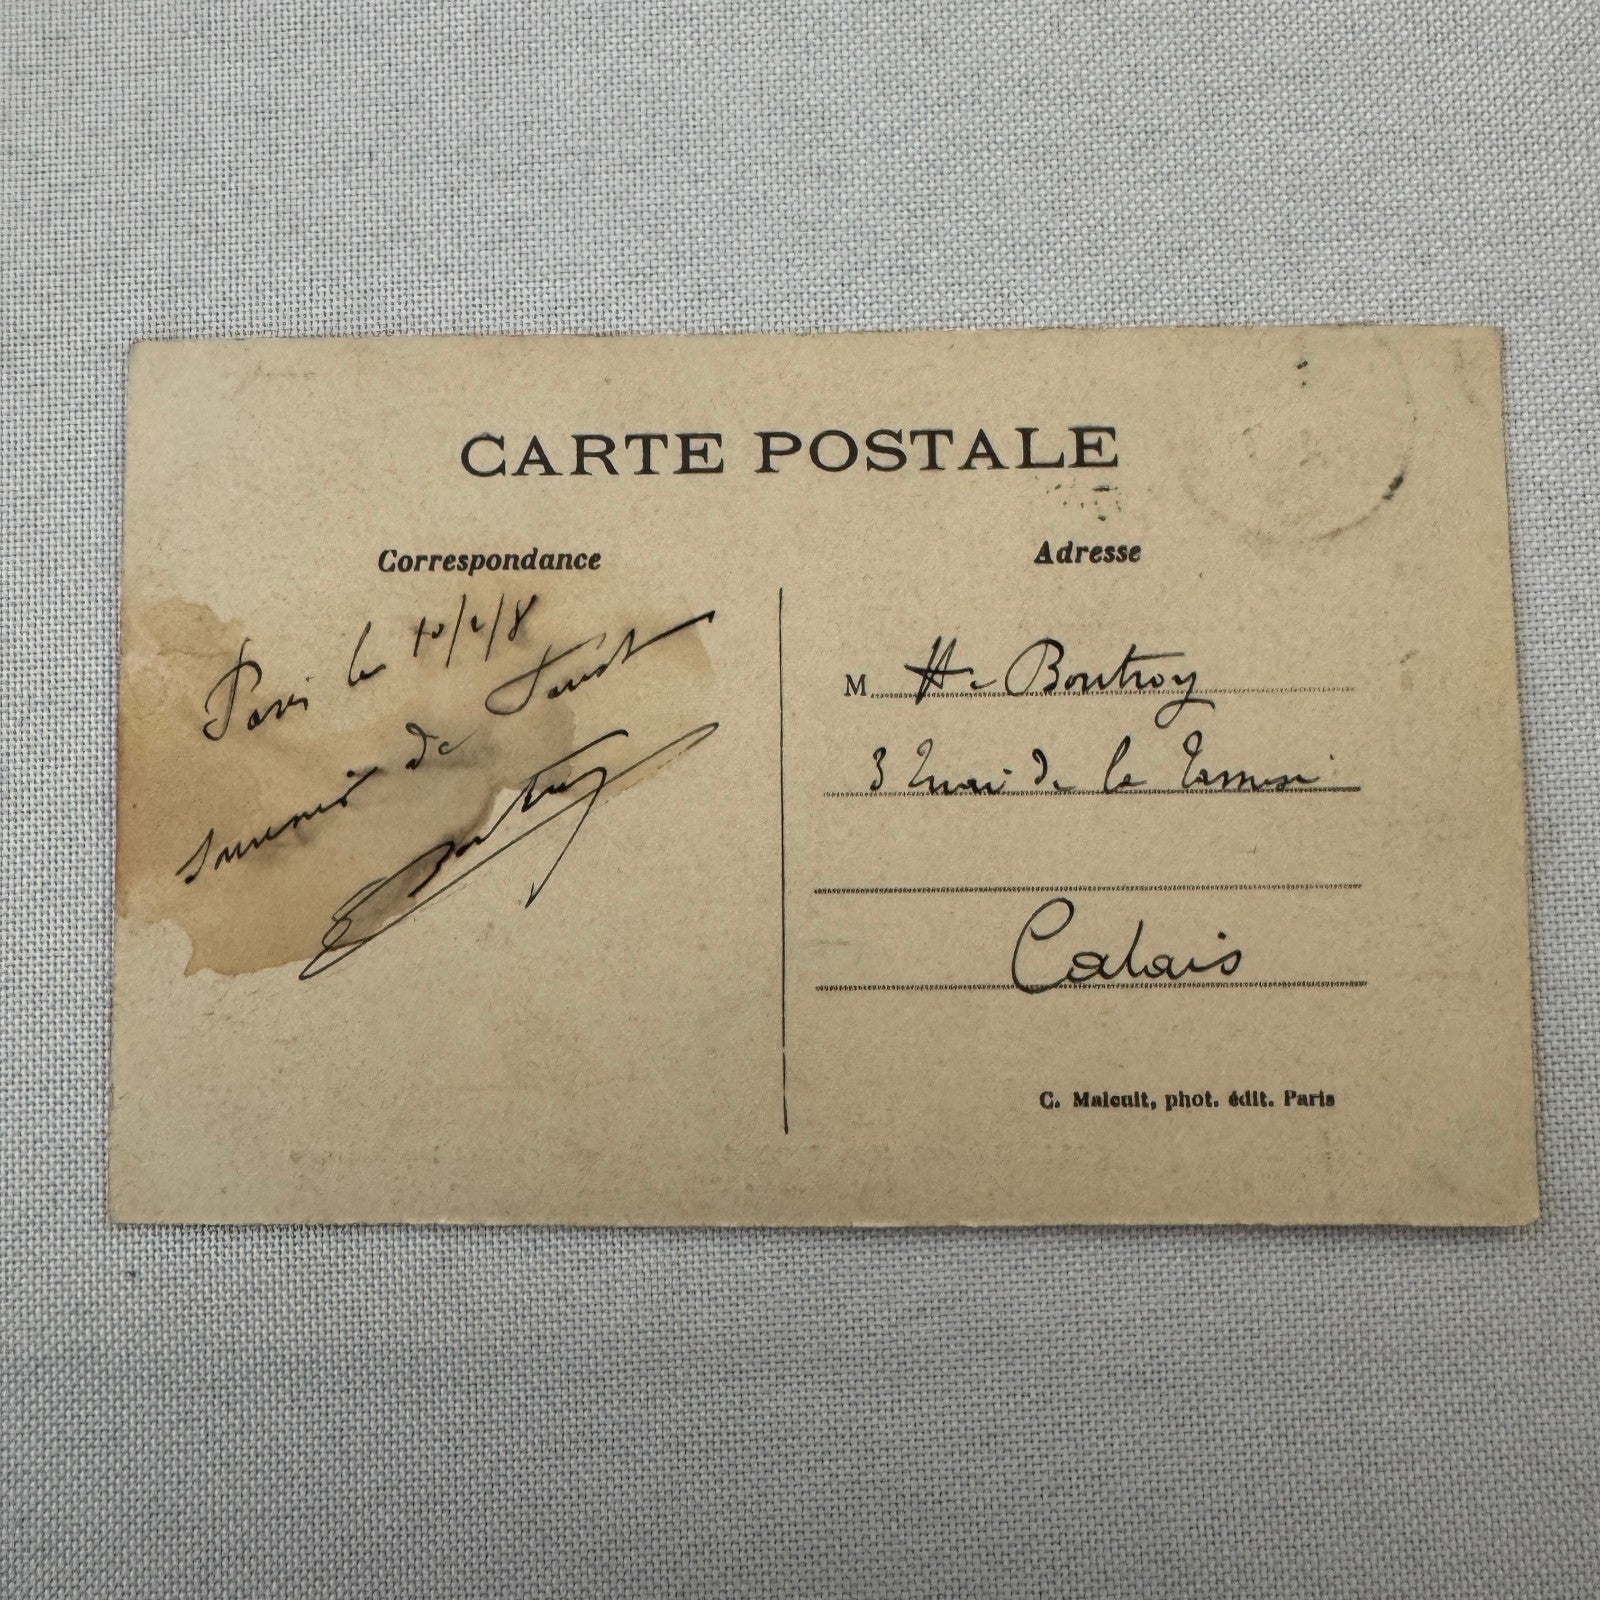 CARTE POSTALE
Correspondance
Paris le 10/2/8
Souvenir de Faust
Boutroy
Adresse
M. H. Boutroy
3 Quai de la Tamise
Calais
C. Malcuit, phot. édit. Paris